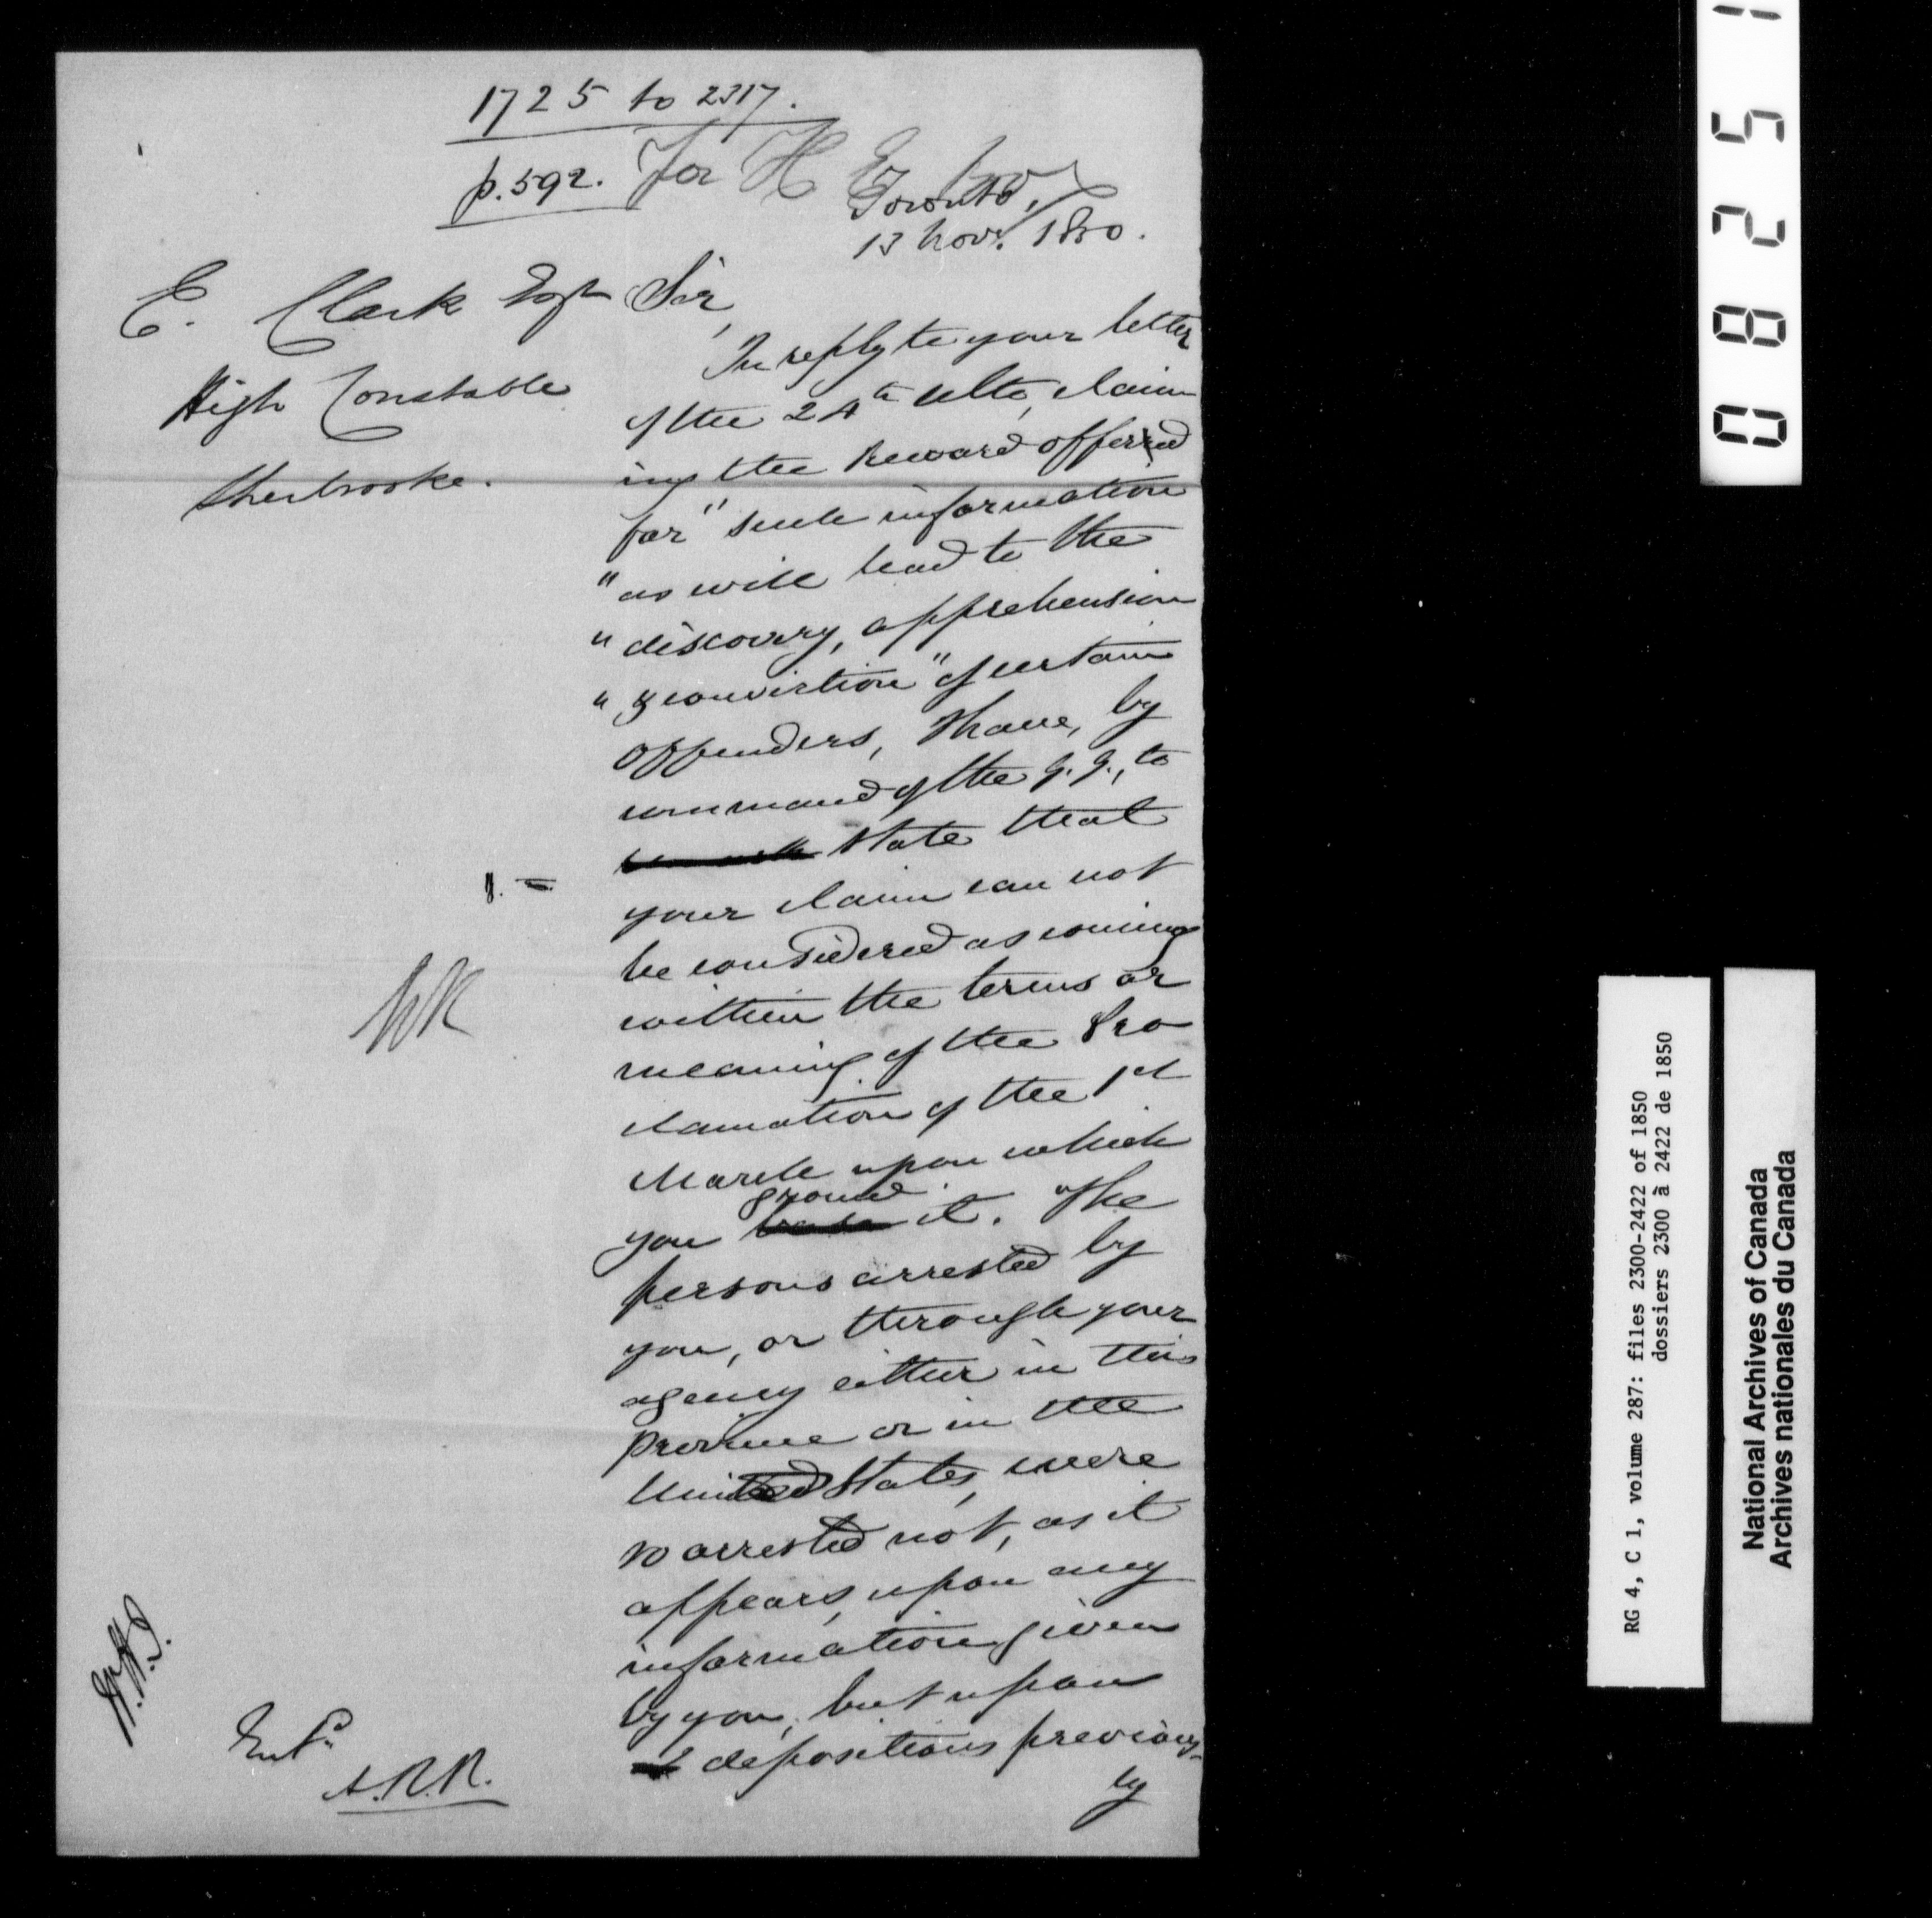 1725 to 2317.
p. 592. For H E
Toronto,
13 Novr. 1850.
E. Clark Esqr
High Constable
Sherbrooke.
Sir,
In reply to your letter
of the 24th ulto, claim
ing the Reward offered
for "such information
"as will lead to the
"discovery, apprehension
"& conviction" of certain
offenders, I have, by
command of the G. G., to
state that
your claim can not
be considered as coming
within the terms or
meaning of the Pro
clamation of the 1st
March upon which
you ground it. The
persons arrested by
you, or through your
agency either in this
Province or in the
United States, were
so arrested not, as it
appears, upon any
information given
by you, but upon
depositions previous-
ly
Entd.
A.R.R.
08251
RG 4, C 1, volume 287: files 2300-2422 of 1850
dossiers 2300 à 2422 de 1850
National Archives of Canada
Archives nationales du Canada